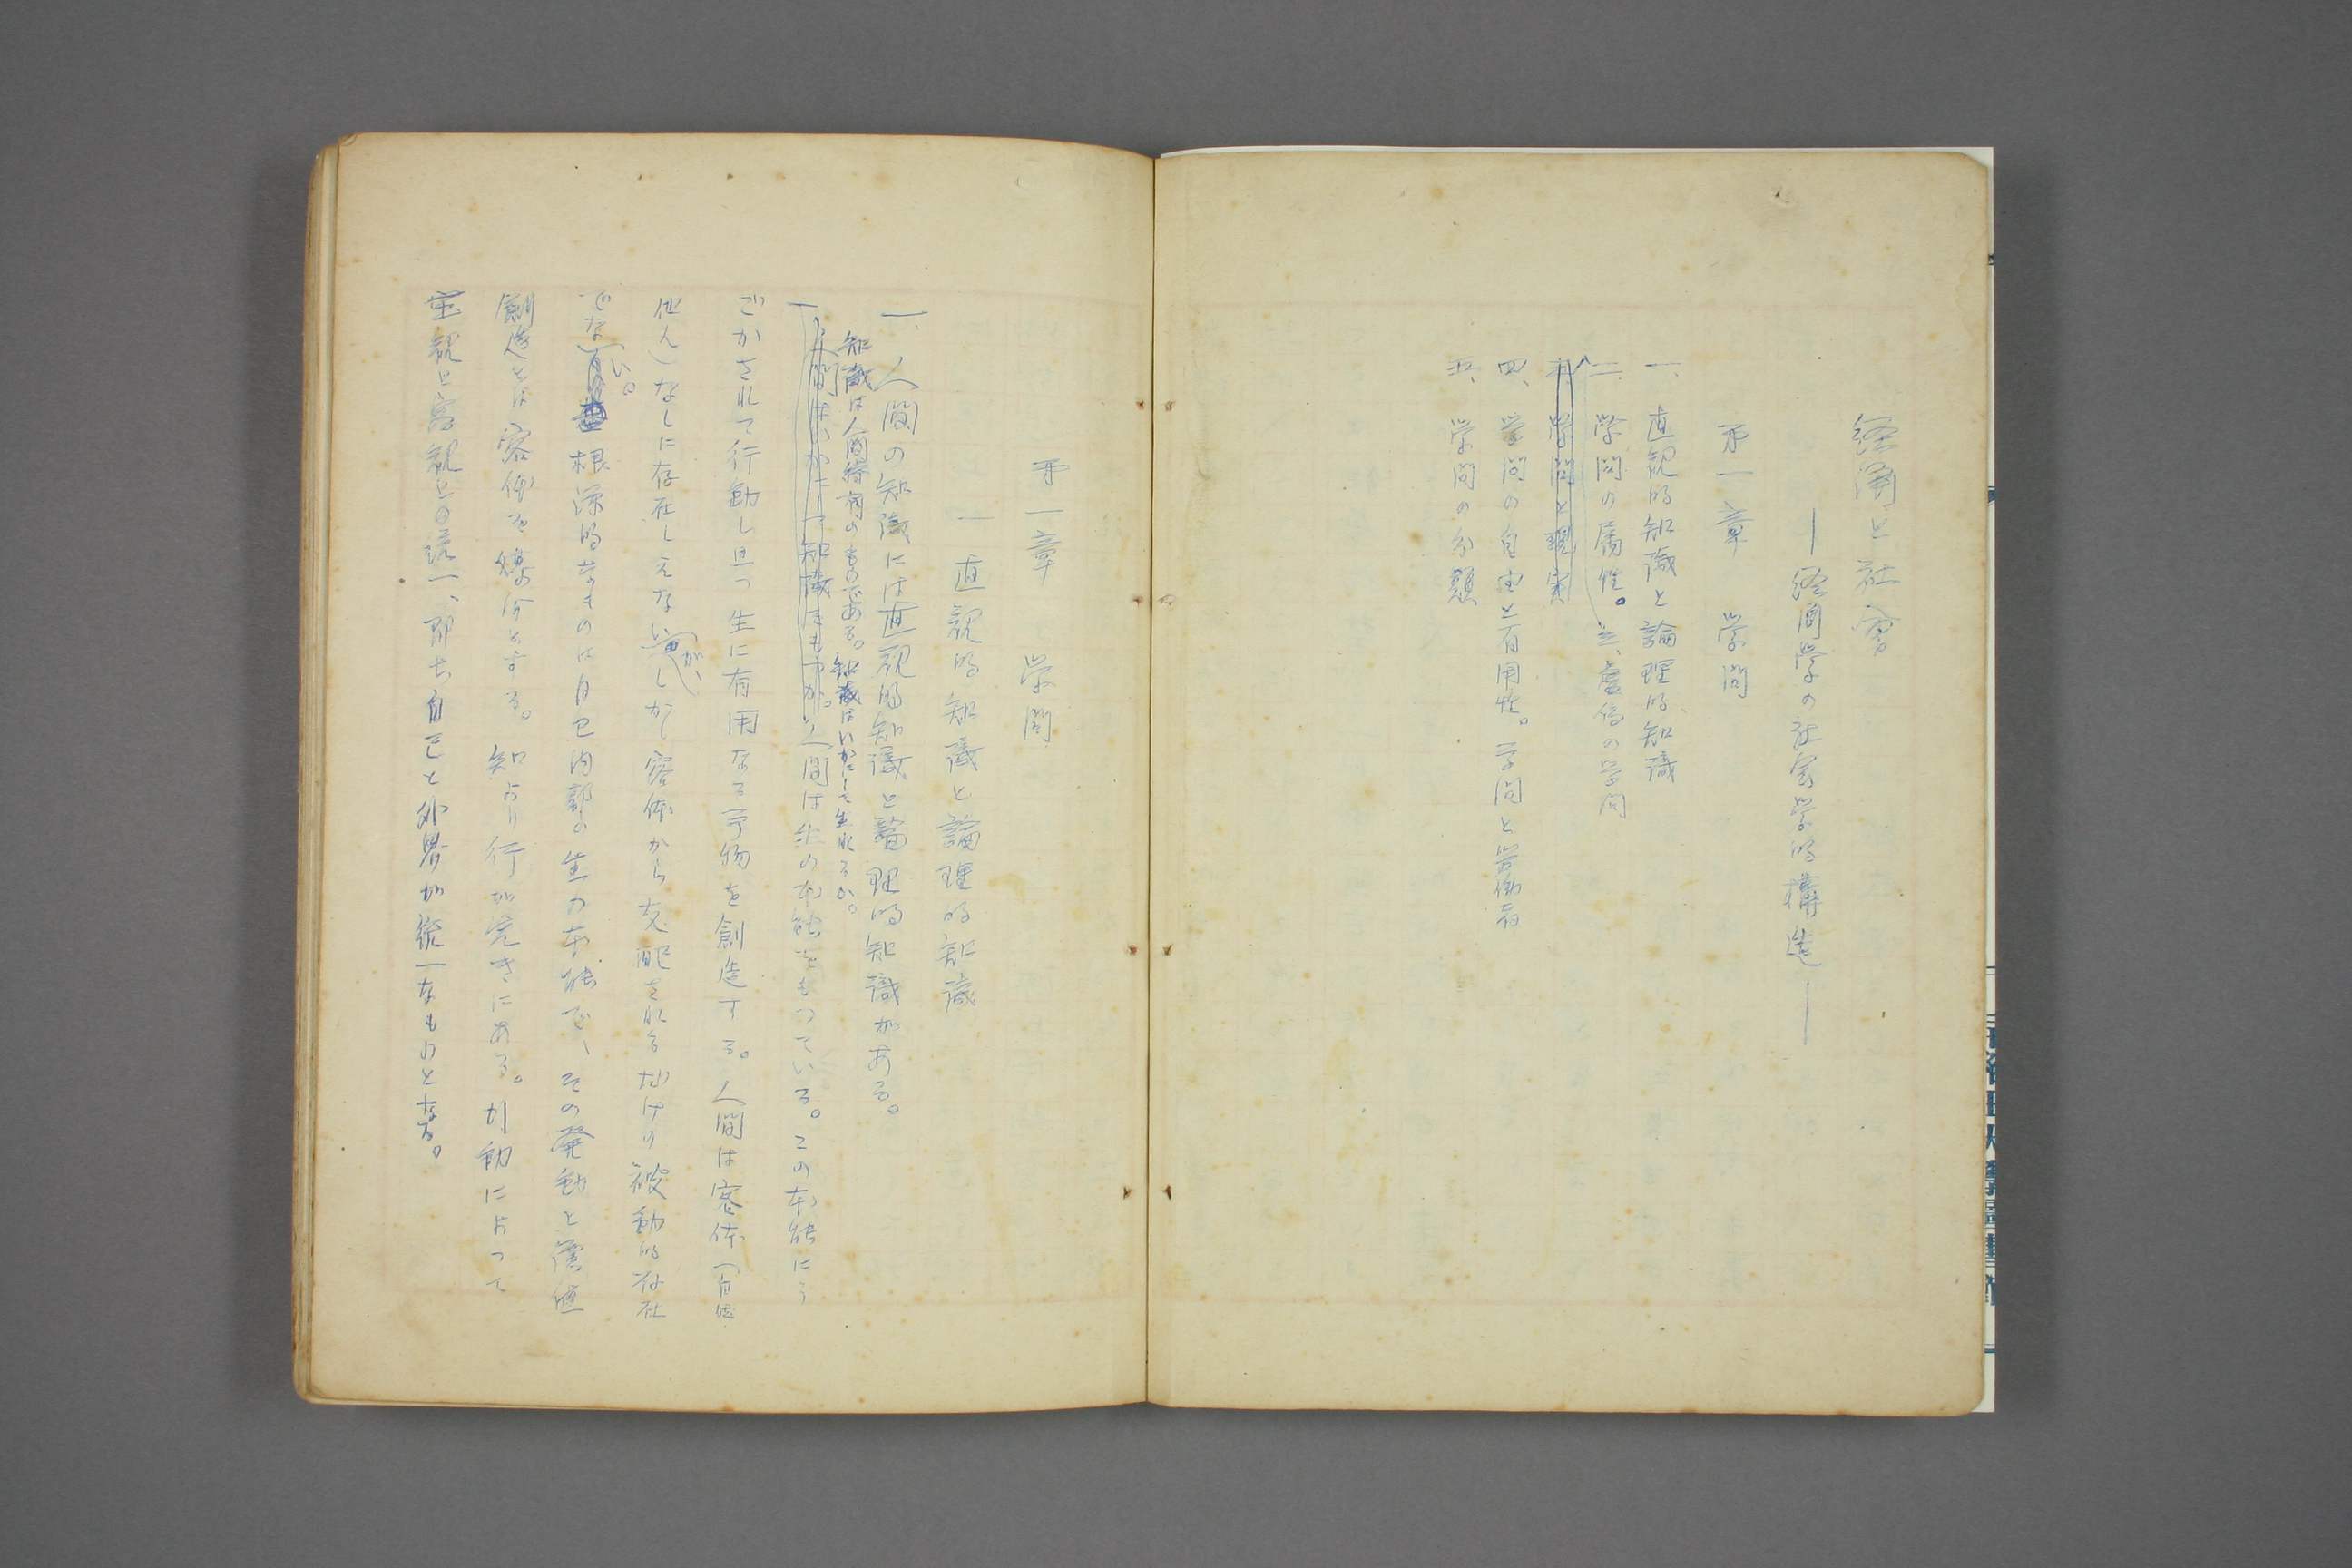 経済と社会
―経済学の社会学的構造―
第一章 学問
一、直観的知識と論理的知識
二、学問の属性。三、虚偽の学問
三、学問と現実
四、学問の自由と有用性。学問と労働
五、学問の分類
第一章 学問
一 直観的知識と論理的知識
一、人間の知識には直観的知識と論理的知識がある。
知識は人間特有のものである。知識はいかにして生れるか。
人間はいかにして知識をもつか。人間は生の本能をもつている。この本能にう
ごかされて行動し且つ生に有用なる事物を創造する。人間は客体(自然
他人)なしに存在しえないが、しかし客体から支配されるだけの被動的存在
でない。根源的なものは自己内部の生の本能で、その発動と価値
創造とは客体を媒介とする。知よりも行が先きにある。行動によつて
主観と客観との統一、即ち自己と外界が統一なものとなる。